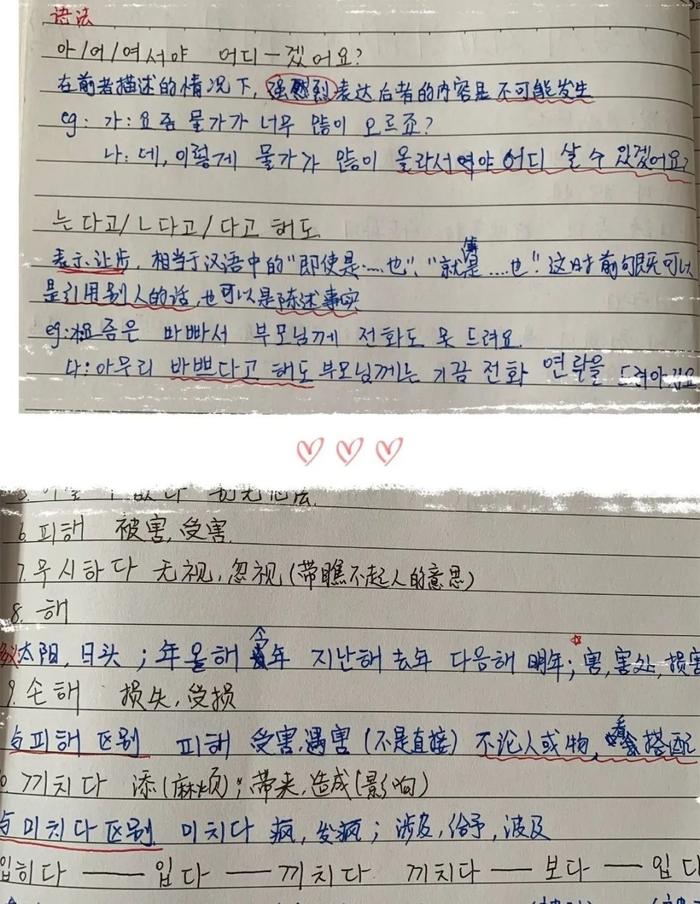 语法
아/어/여서야 어디-겠어요?
在前者描述的情况下,强烈表达后者的内容是不可能发生
eg: 가: 요즘 물가가 너무 많이 오르죠?
나: 데, 이렇게 물가가 많이 올라서야 어디 살 수 있겠어요?
는다고/ㄴ다고/다고 해도
表示让步,相当于汉语中的"即使是……也","就算是……也".这时前句既可以
是引用别人的话,也可以是陈述事实
eg: 요즘은 바빠서 부모님께 전화도 못 드려요.
나: 아무리 바쁘다고 해도 부모님께는 가끔 전화 연락을 드려야
6. 피해 被害,受害.
7. 무시하다 无视,忽视(带瞧不起人的意思)
8. 해
太阳,日头;年 올해 今年 지난해 去年 다음해 明年;害,害处,损害
9. 손해 损失,受损
与피해 区别 피해 受害,遇害(不是直接)不论人或物,看搭配
끼치다 添(麻烦);带来,造成(影响)
与미치다区别 미치다 疯,发疯;涉及,给予,波及
입히다 — 입다 — 끼치다 끼치다 — 보다 — 입다